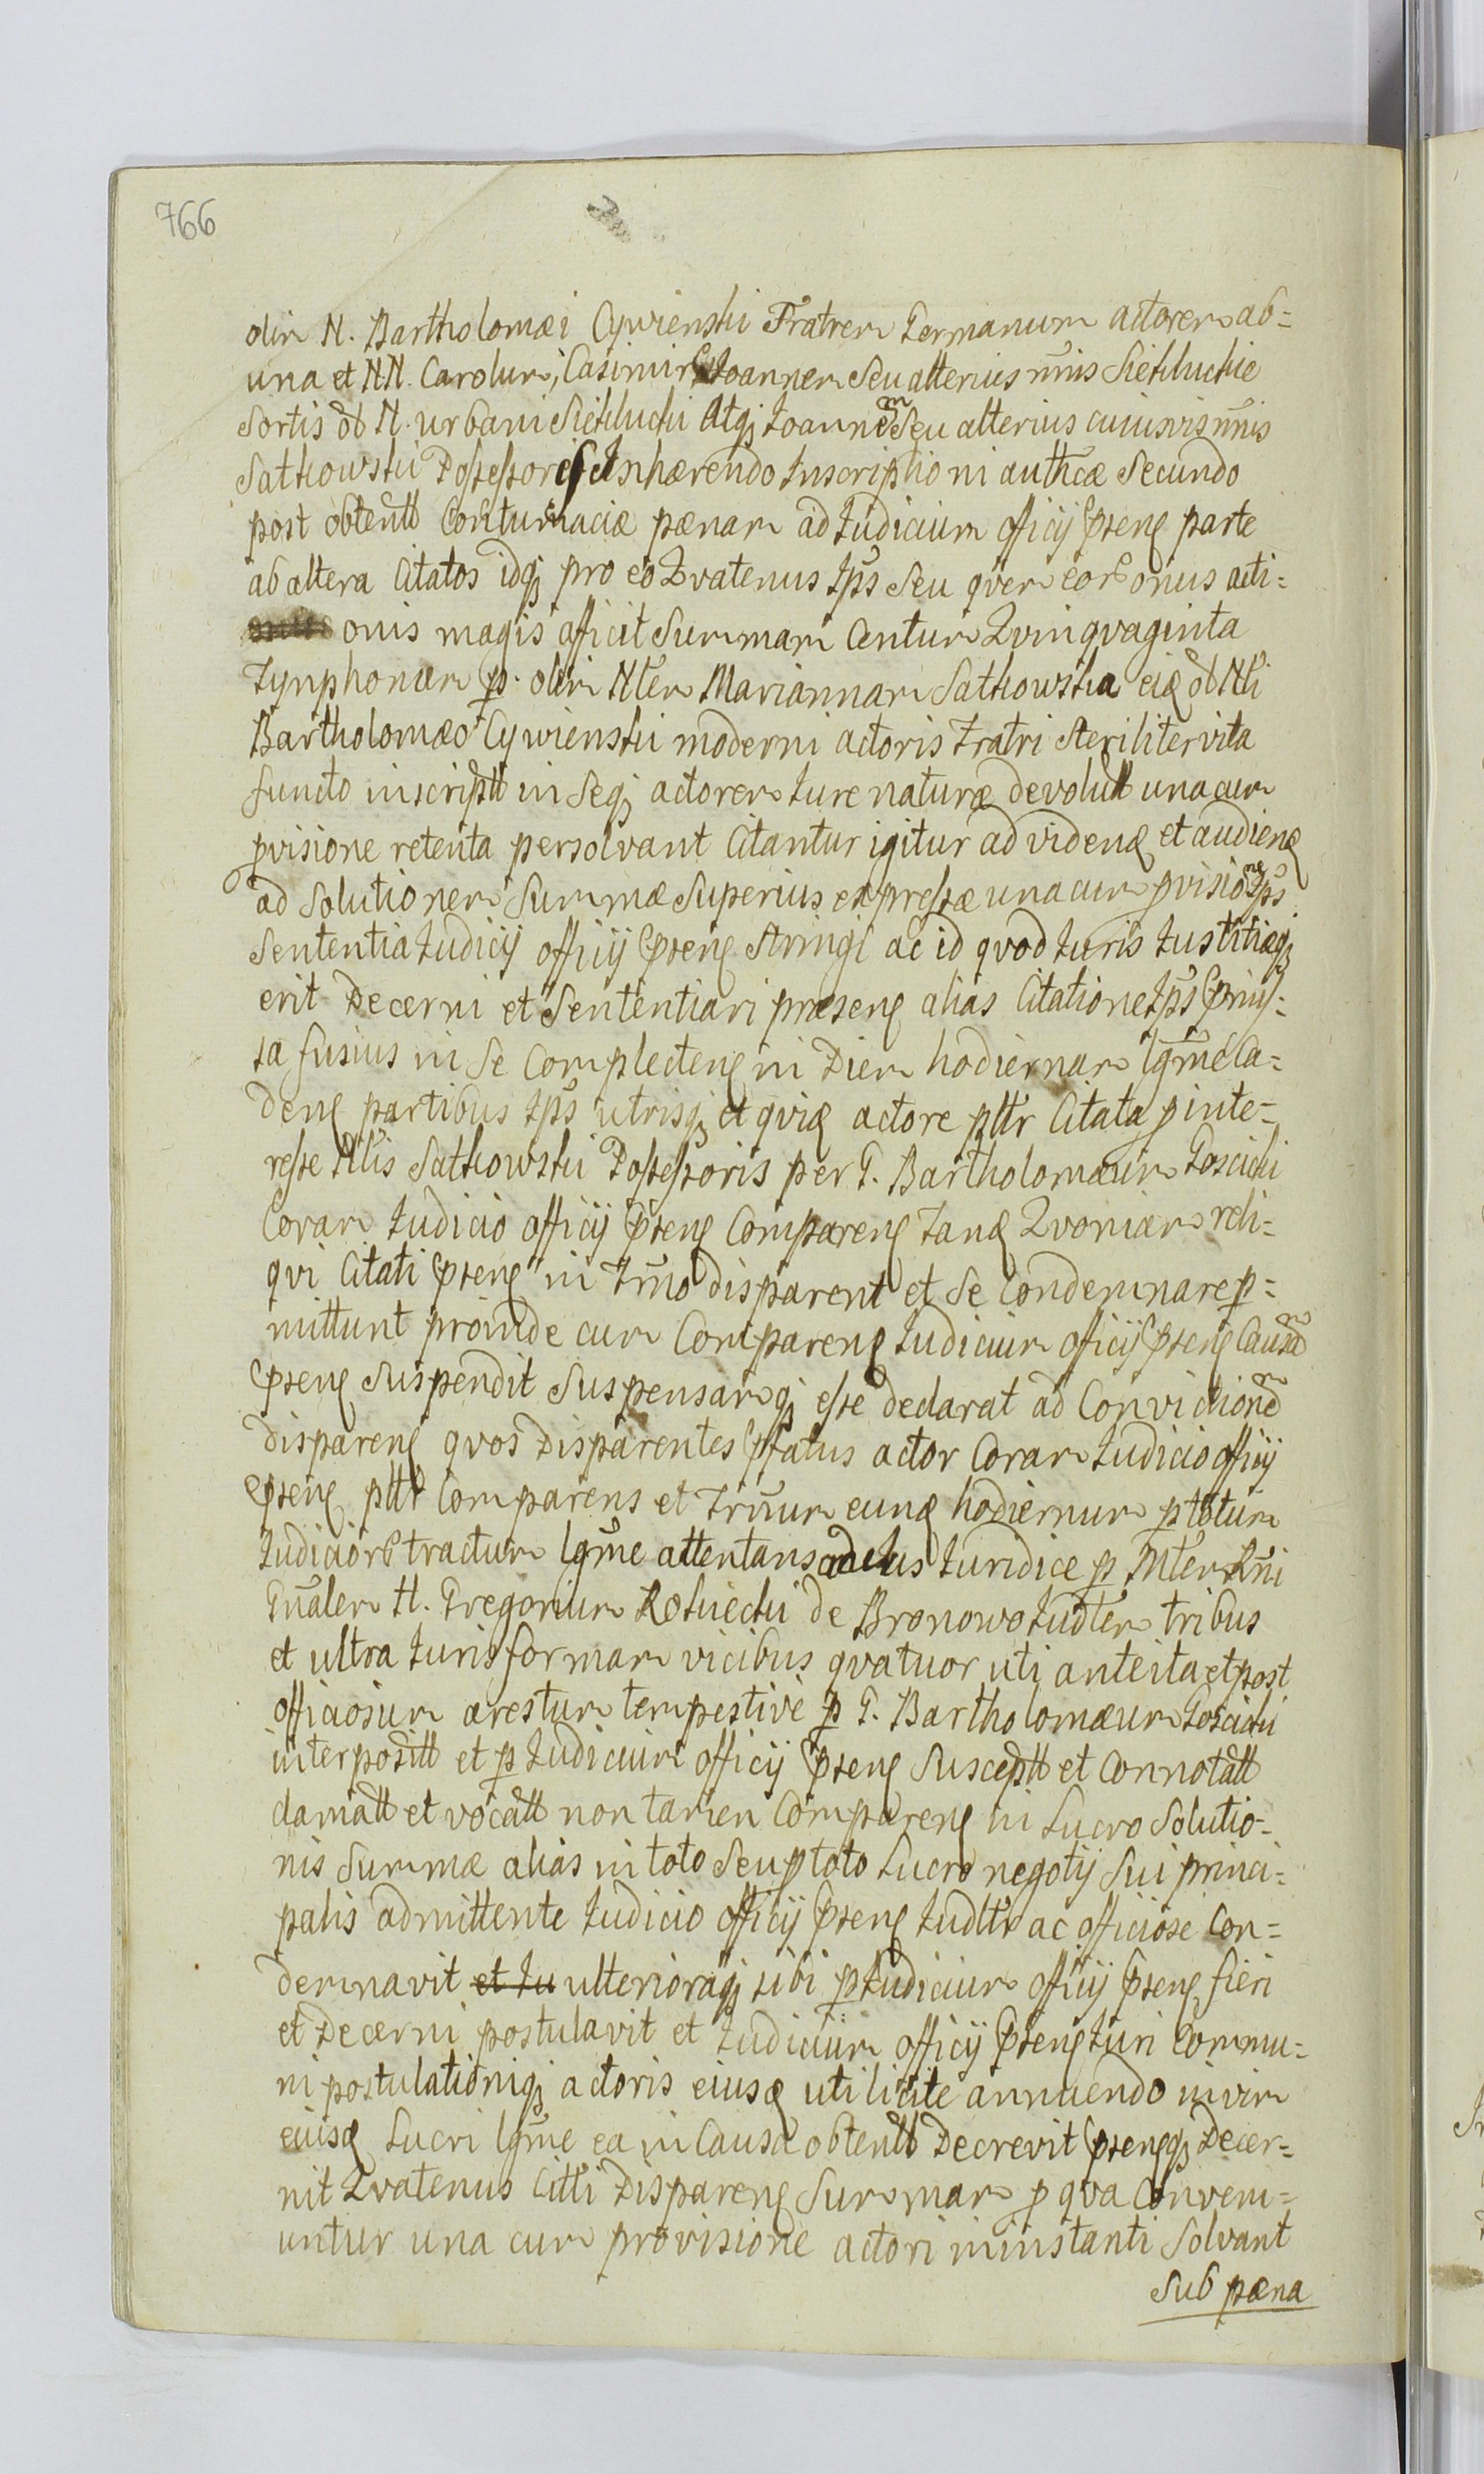 766
olim N. Bartholomæi Cywienski Fratrem Germanum actorem ab=
una et NN. Carolum, Casimir Joannem Seu alterius nĩnis Siekluckie
Sortis ol N. urbani Siekluckj Atqȝ Joannem Seu alterius cuiusvis nĩnis
Satkowski Possessores Inhærendo Inscriptioni authcæ Secundo
post obtentt Contumaciæ pænam ad Judicium officij Pñens parte
ab altera Citatos idqȝ pro eo Qvatenus Ips Seu qvem eor onus acti=
onis magis afficit Summam Centum Qvinqvaginta
Tynphonum p olim Nlem Mariannam Satkowska eid ol Nli
Bartholomæo Cywienski moderni actoris Fratri Steriliter vita
functo inscriptt in Seqȝ actorem Jure naturæ devolutt una cum
pvisione retenta persolvant Citantur igitur ad videnđ et audienđ
ad Solutionem Summæ Superius expressæ una cum pvisione Ips
Sententia Judicij officij Pñens Stringi ac id qvod Juris Justitiæqȝ
erit Decerni et Sententiari præsens alias Citatione Ips Pñis-
sa fusius in Se Complectens in Diem hodiernam lgme Ca=
dens partibus Ips utrisqȝ et qvia actore pltr Citata p inte=
resse Nlis Satkowski Possessoris per G. Bartholomæum Koscicki
Coram Judicio officij Pñens Comparens Tand Qvoniam reli=
qvi Citati Pñens in Trno disparent et Se Condemnare p=
mittunt proinde cum Comparens Judicium officij Pñens Causam
Pñens Suspendit Suspensamqȝ esse declarat ad Convictionem
disparens qvos Disparentes Pfatus actor Coram Judicio officij
Pñens pltr Comparens et Trnum eund hodiernum p totum
Judicior tractum lgme attentans Juridice p Mtem Rni
Gnalem N. Gregorium Rokicki de Bronowo Judlem tribus
et ultra Juris formam vicibus qvatuor uti ante ita et post
officiosum arestum tempestive p G. Bartholomæum Koscicki
interpositt et p Judicium officij Pñens Susceptt et Connotatt
clamatt et vocatt non tamen Comparens in Lucro Solutio-
nis Summæ alias in toto Seu p toto Lucro negotij Sui princi=
palis admittente Judicio officij Pñens Judltr ac officiose Con=
demnavit et Ju ulterioraqȝ sibi p Judicium officij Pñens fieri
et Decerni postulavit et Judicium officij Pñens Juri Commu=
ni postulationiqȝ actoris eiusd uti licite annuendo in vim
eiusd Lucri lgme ea in Causa obtentt Decrevit Pñensqȝ Decer=
nit Qvatenus Citti Dispareng Summam p qva Conveni=
untur una cum provisione actori in instanti Solvant
Sub pæna